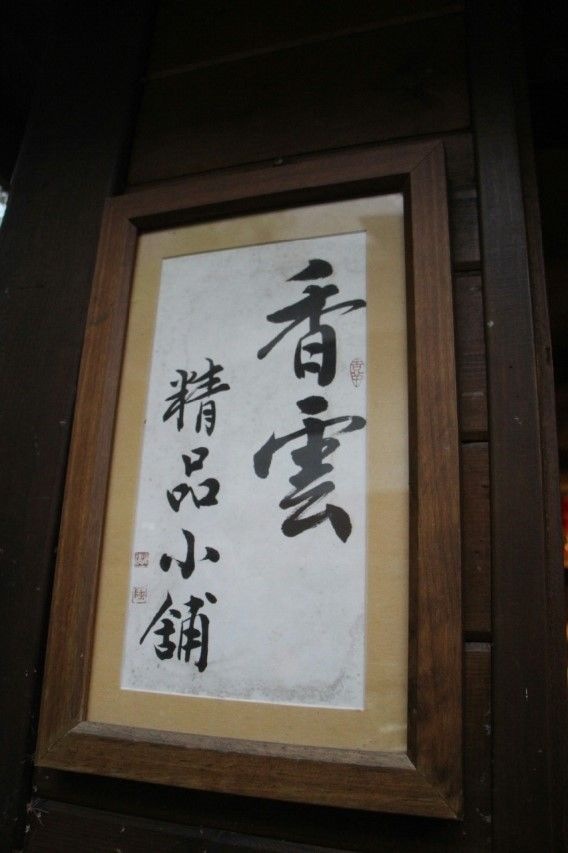 香雲
精品小舖